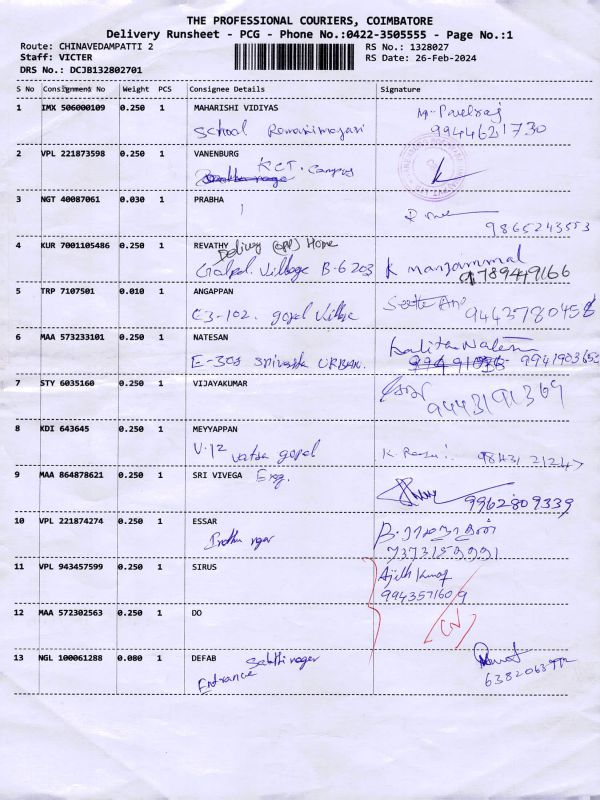 THE PROFESSIONAL COURIERS, COIMBATORE
Delivery Runsheet - PCG - Phone No.:0422-3505555 - Page No.:1
Route: CHINAVEDAMPATTI 2 RS No.: 1328027
Staff: VICTER RS Date: 26-Feb-2024
DRS No.: DCJB132802701
S No Consignment No Weight PCS Consignee Details Signature
1 IMX 506000109 0.250 1 MAHARISHI VIDIYAS M. Paulraj
School 9944621730
2 VPL 221873598 0.250 1 VANENBURG
KCT. Campus
3 NGT 40087061 0.030 1 PRABHA
9865243553
4 KUR 7001105486 0.250 1 REVATHY Delivery (opp) Home
Village B-6 203 K Manjammal
9789449166
5 TRP 7107501 0.010 1 ANGAPPAN
E3-102. gopal Village
6 MAA 573233101 0.250 1 NATESAN Lalita Natesan
E-308 URBAN. 9941903650
7 STY 6035160 0.250 1 VIJAYAKUMAR
9443191369
8 KDI 643645 0.250 1 MEYYAPPAN
V-12 vatsa gopal
9 MAA 864878621 0.250 1 SRI VIVEGA Eng.
9962809339
10 VPL 221874274 0.250 1 ESSAR
11 VPL 943457599 0.250 1 SIRUS Ajith Kumar
9943571609
12 MAA 572302563 0.250 1 DO
13 NGL 100061288 0.080 1 DEFAB Sakthi nagar
Entrance